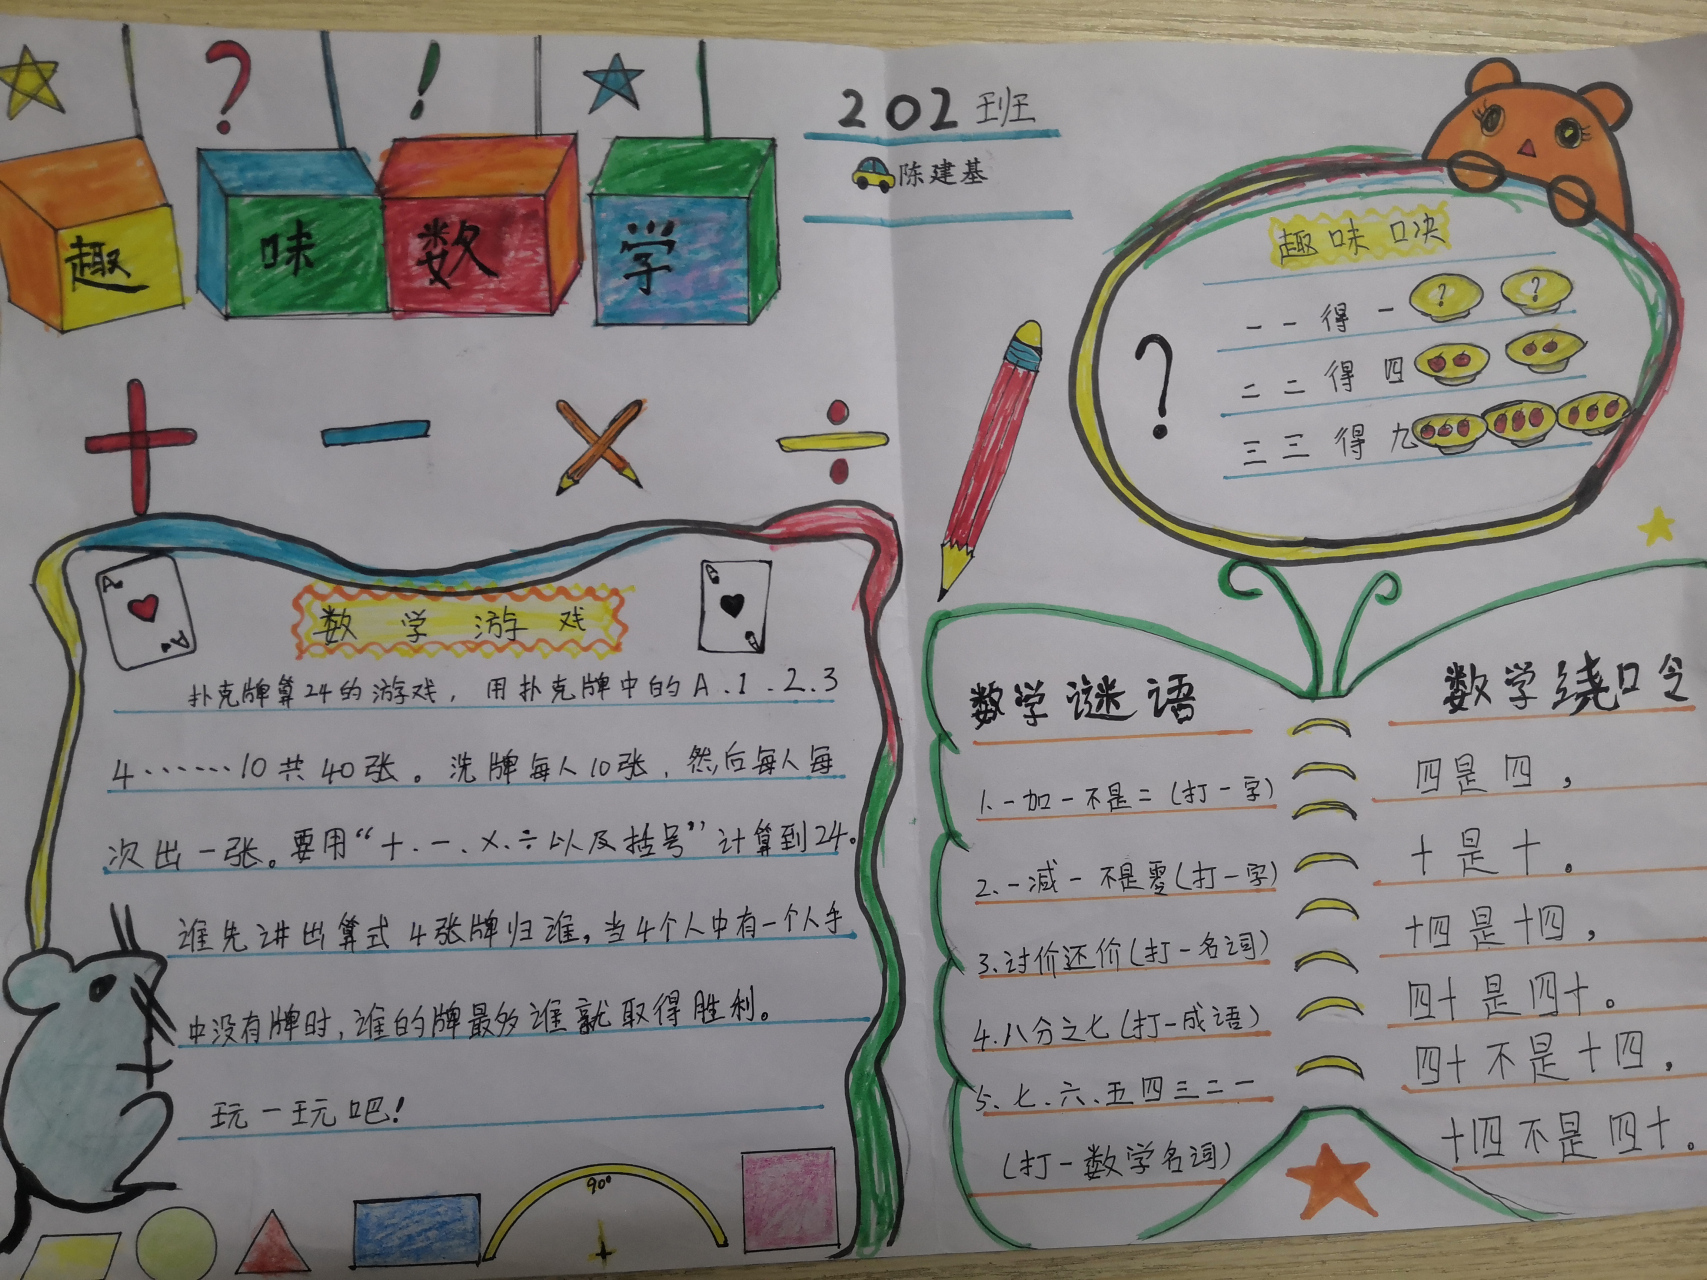 趣味数学
202班
陈建基
趣味口决
一一得一
二二得四
三三得九
?
?
?
?
!
+ - × ÷
A
A
数学游戏
A
扑克牌算24的游戏，用扑克牌中的A.1.2.3
4……10共40张。洗牌每人10张，然后每人每
次出一张。要用“+.-.×.÷以及括号”计算到24。
谁先讲出算式4张牌归谁，当4个人中有一个人手
中没有牌时，谁的牌最多谁就取得胜利。
玩一玩吧！
90°
数学谜语
1、一加一不是二(打一字)
2、一减一不是零(打一字)
3.讨价还价(打一名词)
4.八分之七(打一成语)
5、七、六、五四三二一
(打一数学名词)
数学绕口令
四是四，
十是十。
十四是十四，
四十是四十。
四十不是十四，
十四不是四十。